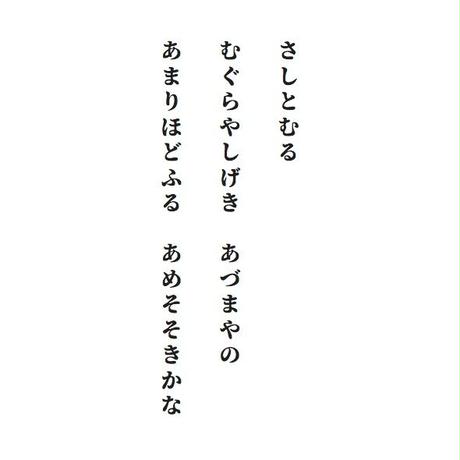 さしとむる
むぐらやしげき　あづまやの
あまりほどふる　あめそそきかな